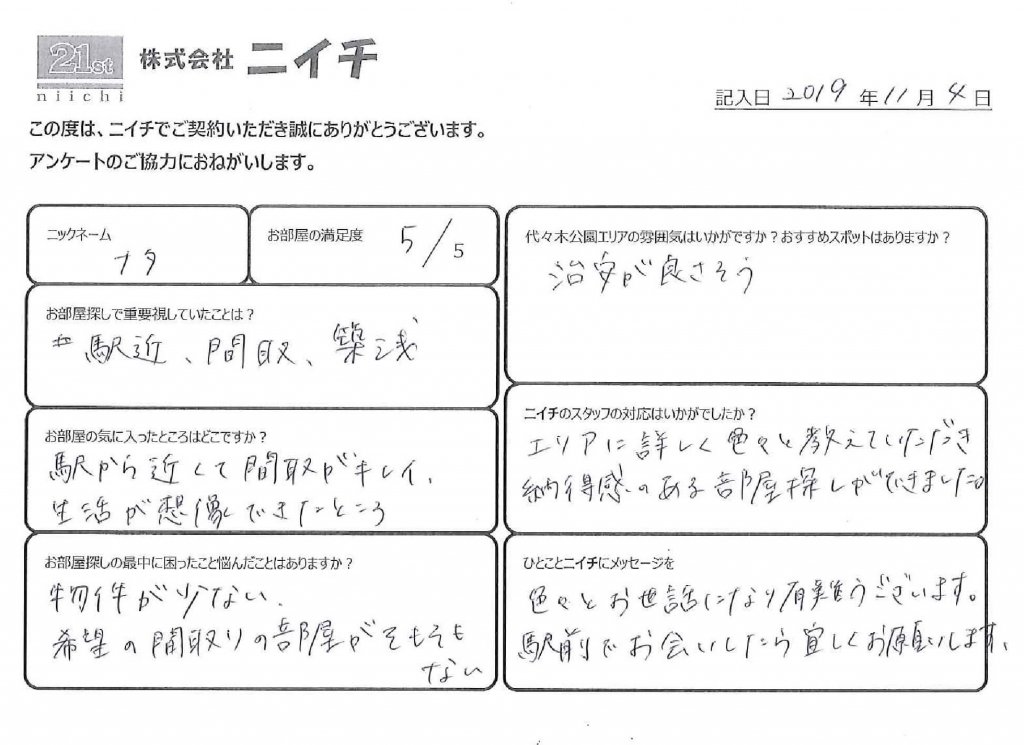 21st
niichi
株式会社 ニイチ
記入日 2019 年 11 月 4 日
この度は、ニイチでご契約いただき誠にありがとうございます。
アンケートのご協力におねがいします。
ニックネーム
ナタ
お部屋の満足度 5/5
お部屋探しで重要視していたことは?
駅近、間取、築浅
お部屋の気に入ったところはどこですか?
駅から近くて間取がキレイ、
生活が想像できたところ
お部屋探しの最中に困ったこと悩んだことはありますか?
物件が少ない、
希望の間取りの部屋がそもそも
ない
代々木公園エリアの雰囲気はいかがですか?おすすめスポットはありますか?
治安が良さそう
ニイチのスタッフの対応はいかがでしたか?
エリアに詳しく色々と教えていただき
納得感のある部屋探しができました。
ひとことニイチにメッセージを
色々とお世話になり有難うございます。
駅前でお会いしたら宜しくお願いします、